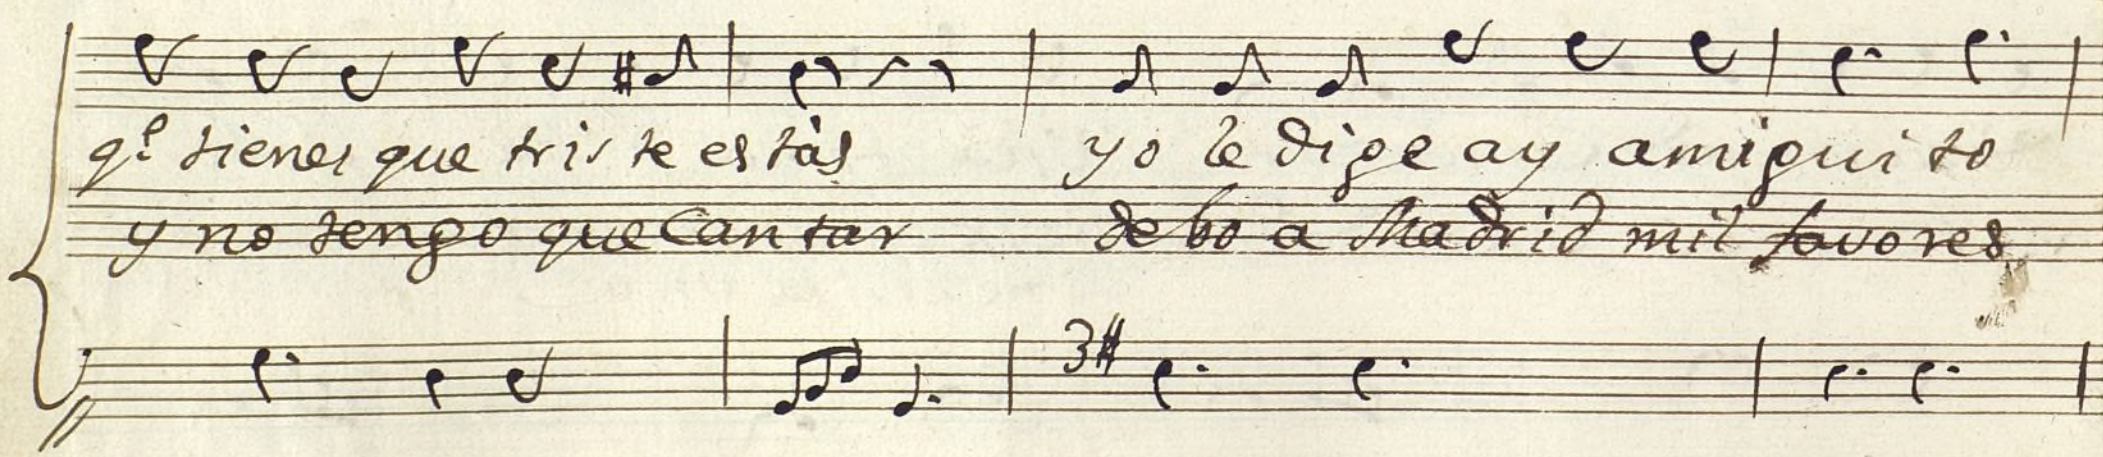 qe tienes que tris te es tàs yo le dige ay amigui to
y no tengo que Can tar de bo a Madrid mil favo res
3#